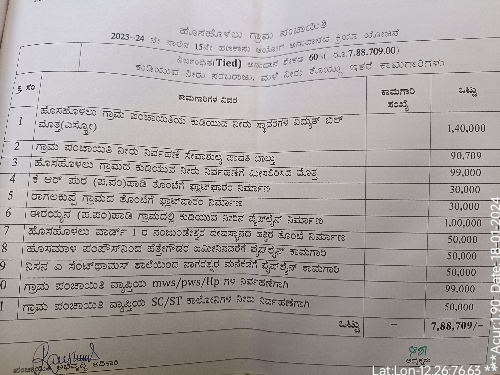 ಹೊಸಹೊಳಲು ಗ್ರಾಮ ಪಂಚಾಯಿತಿ
2023-24 ನೇ ಸಾಲಿನ 15ನೇ ಹಣಕಾಸು ಆಯೋಗ ಅನುದಾನದ ಕ್ರಿಯಾ ಯೋಜನೆ
ನಿರ್ಬಂಧಿತ(Tied) ಅನುದಾನ ಶೇಕಡ 60% ರೂ.7,88,709.00)
ಕುಡಿಯುವ ನೀರು ಸರಬರಾಜು, ಮಳೆ ನೀರು ಕೊಯ್ಲು ಇತರೆ ಕಾಮಗಾರಿಗಳು
ಕ್ರ ಸಂ ಕಾಮಗಾರಿಗಳ ವಿವರ ಕಾಮಗಾರಿ ಸಂಖ್ಯೆ ಒಟ್ಟು
1 ಹೊಸಹೊಳಲು ಗ್ರಾಮ ಪಂಚಾಯಿತಿಯ ಕುಡಿಯುವ ನೀರು ಸ್ಥಾವರಗಳ ವಿದ್ಯುತ್ ಬಿಲ್
ಮೊತ್ತ(ಎಸ್ಕ್ರೋ) 1,40,000
2 ಗ್ರಾಮ ಪಂಚಾಯಿತಿ ನೀರು ನಿರ್ವಹಣೆ ಸೇವಾಶುಲ್ಕ ಪಾವತಿ ಬಾಬ್ತು 90,709
3 ಹೊಸಹೊಳಲು ಗ್ರಾಮದ ಕುಡಿಯುವ ನೀರು ನಿರ್ವಹಣೆಗೆ ಮೀಸಲಿರಿಸಿದ ಮೊತ್ತ 99,000
4 ಕೆ ಆರ್ ಪುರ (ಪ.ಪಂ)ಹಾಡಿ ತೊಂಟೆಗೆ ಫ್ಲಾಟ್‌ಫಾರಂ ನಿರ್ಮಾಣ 30,000
5 ರಾಗಲಕುಪ್ಪೆ ಗ್ರಾಮದ ತೊಂಟೆಗೆ ಫ್ಲಾಟ್‌ಫಾರಂ ನಿರ್ಮಾಣ 30,000
6 (ಪ.ಪಂ)ಹಾಡಿ ಗ್ರಾಮದಲ್ಲಿ ಕುಡಿಯುವ ನೀರಿನ ಪೈಪ್‌ಲೈನ್ ನಿರ್ಮಾಣ 1,00,000
7 ಹೊಸಹೊಳಲು ವಾರ್ಡ್ 1 ರ ನಂಜುಂಡೇಶ್ವರ ದೇವಸ್ಥಾನದ ಹತ್ತಿರ ತೊಂಟೆ ನಿರ್ಮಾಣ 50,000
8 ಹೊಸಮಾಳ ಪಂಪ್‌ಹೌಸ್‌ನಿಂದ ಜಮೀನಿನವರೆಗೆ ಪೈಪ್‌ಲೈನ್ ಕಾಮಗಾರಿ 50,000
9 ಶಾಲೆಯಿಂದ ನಾಗರತ್ನರ ಮನೆಕಡೆಗೆ ಪೈಪ್‌ಲೈನ್ ಕಾಮಗಾರಿ 50,000
0 ಗ್ರಾಮ ಪಂಚಾಯಿತಿ ವ್ಯಾಪ್ತಿಯ mws/pws/flp ಗಳ ನಿರ್ವಹಣೆಗಾಗಿ 99,000
1 ಗ್ರಾಮ ಪಂಚಾಯಿತಿ ವ್ಯಾಪ್ತಿಯ SC/ST ಕಾಲೋನಿಗಳ ನೀರು ನಿರ್ವಹಣೆಗಾಗಿ 50,000
ಒಟ್ಟು – 7,88,709/-
ಪಂಚಾಯಿತಿ ಅಭಿವೃದ್ಧಿ ಅಧಿಕಾರಿ
ಅಧ್ಯಕ್ಷರು
Lat:Lon-12.26:76.63